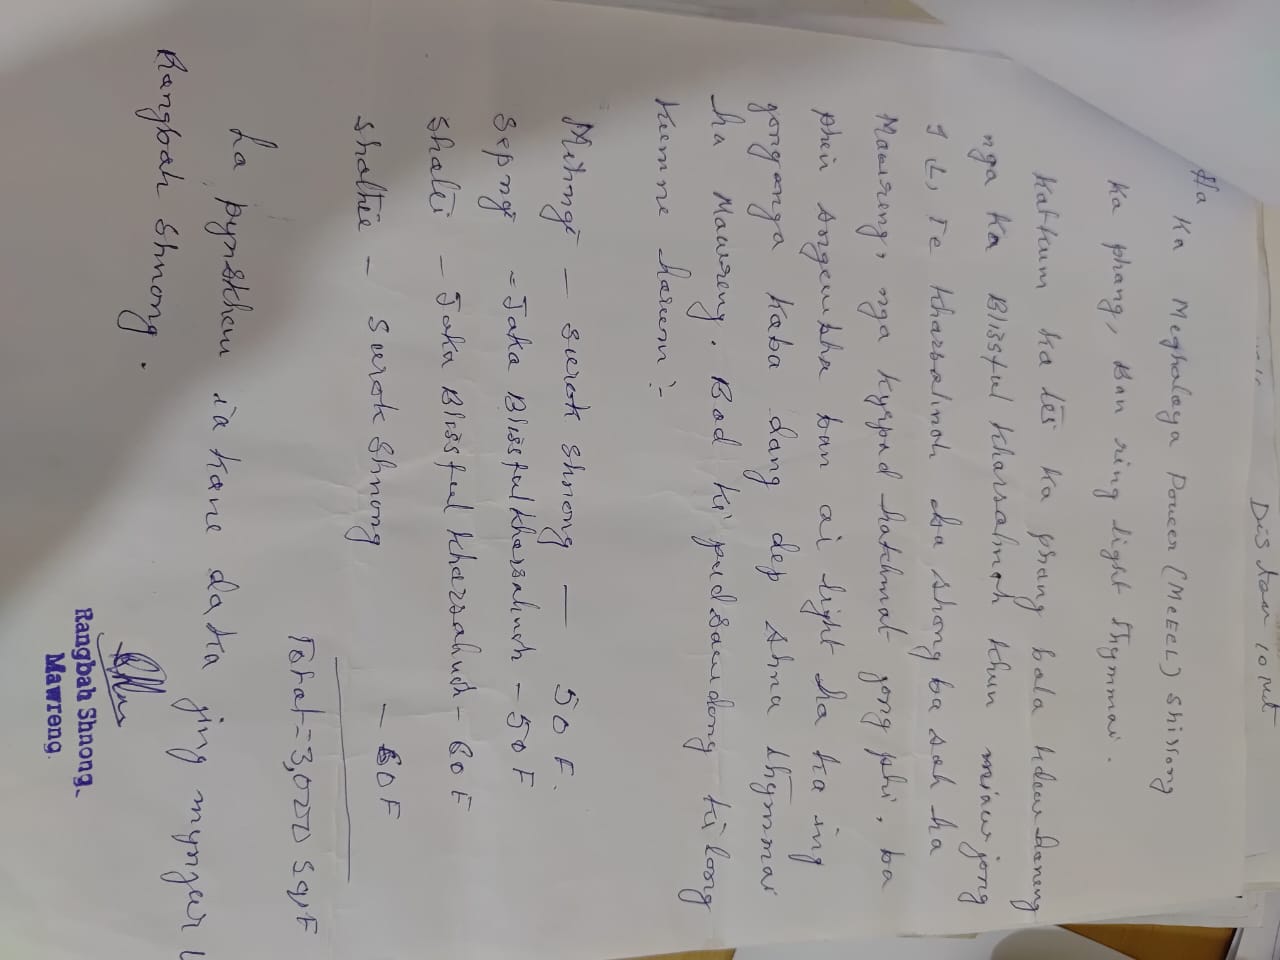 Distan 10 mt
Ha
Ka Meghalaya Power (MeECL) Shillong
Ka phang, Ban ring light thymmai.
Katkum ka lei ka phang bala kdew haneng
nga ka Blissful Kharsahnoh khun jong
I L, Te Kharsalinoh ba shong ba sah ha
Mawreng, nga kyrpad hakhmat jong phi, ba
phin sngewbha ban ai light ha ka ing
jong nga kaba dang dep shna thymmai
ha Mawreng. Bad ki pud sawdong ki long
kumne harum:-
Mihngi - Surok Shnong - 50 F.
Sepngi - Jaka Blissful Kharsahnoh - 50 F
Shatei - Jaka Blissful Kharsahnoh - 60 F
Shathie - Surok Shnong - 60 F
Total = 3,000 sq, F
La pynskhem ia kane da ka jing mynjur
Rangbah Shnong.
Rangbah Shnong.
Mawreng.